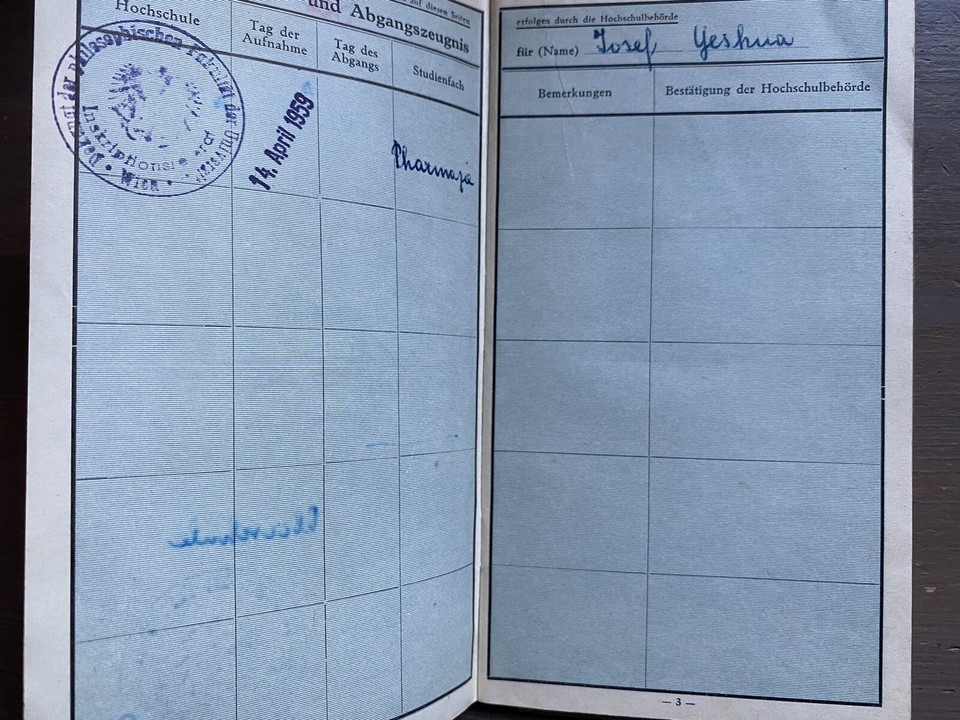 auf diesen Seiten
und Abgangszeugnis
Hochschule
Tag der
Aufnahme
Tag des
Abgangs
Studienfach
Dekanat der philosophischen Fakultät der Universität
Wien
14. April 1959
erfolgen durch die Hochschulbehörde
für (Name) Josef Yeshua
Bemerkungen
Bestätigung der Hochschulbehörde
— 3 —